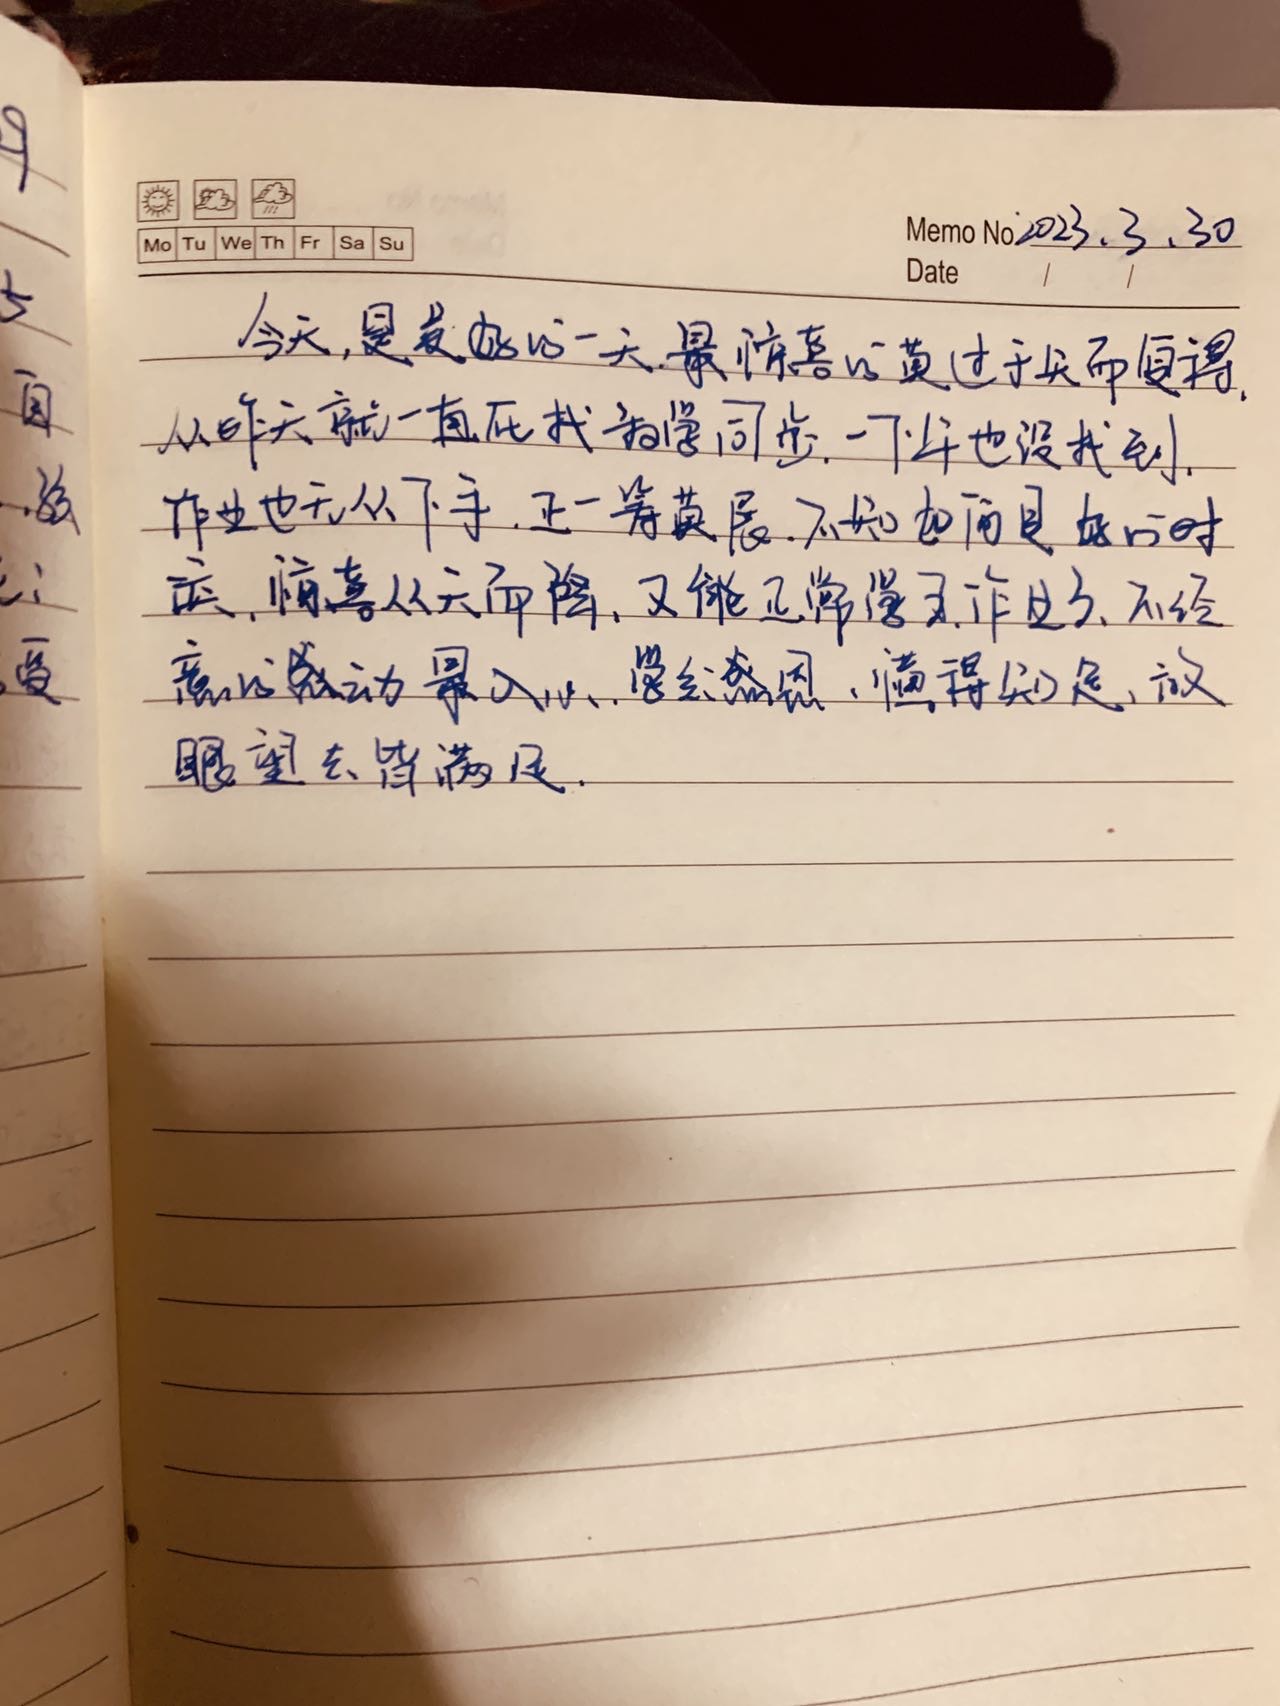 Mo Tu We Th Fr Sa Su
Memo No 2023.3.30
Date / /
今天,是美好的一天.最惊喜的莫过于失而复得,
从昨天就一直在找教学同步,一下午也没找到,
作业也无从下手.正一筹莫展.不知如何是好的时
候,惊喜从天而降,又能正常学习.作业了、不经
意的感动最入心.学会感恩,懂得知足,放
眼望去皆满足.